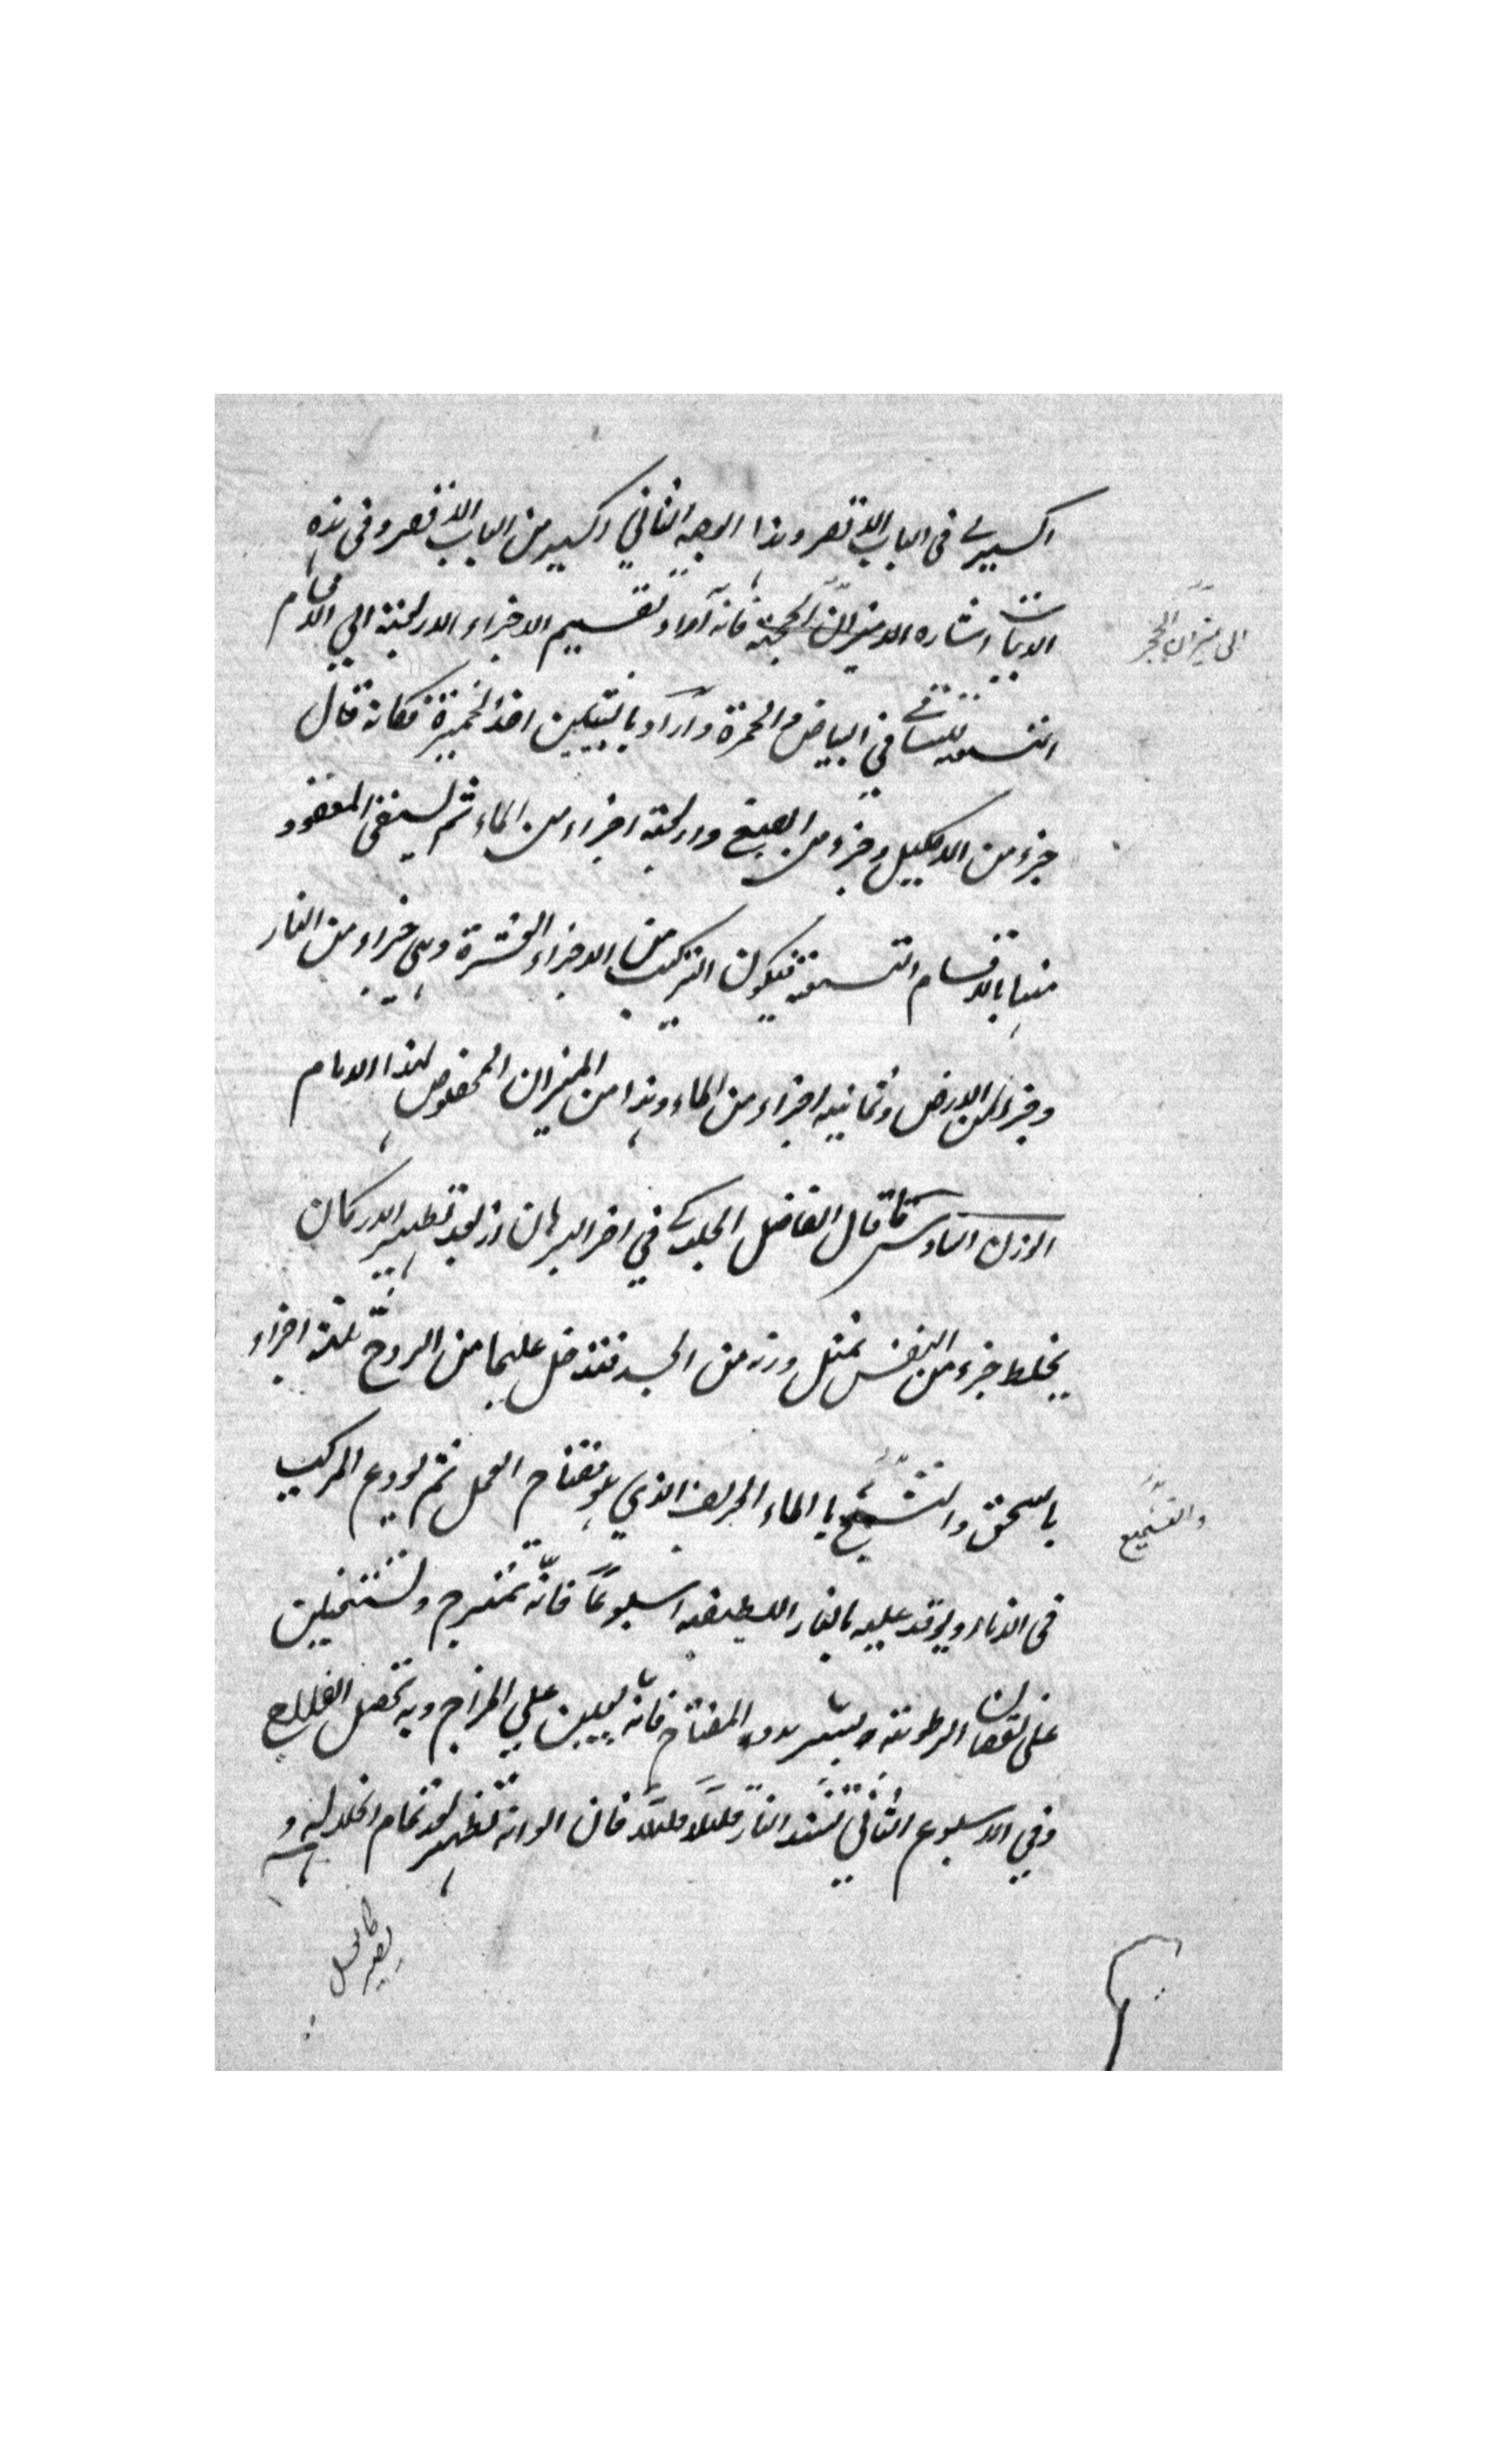 اكسيري في الباب الاقصر وهذا الوجه الثاني اكسير من الباب الاقصر وفي هذه
الابيات اشاره الاميزان الحجة فانه اراد تقسيم الاجزاء الاربعة الي الاقسام
التسعه للتساقي في البياض و الحمرة و اراد بالثقيلين اخذ الخميرة فكانه قال
جزء من الاكليل وجزء من الصبغ واربعة اجزاء من الماء ثم يسقي المعقود
منها بالاقسام التسعه فيكون التركيب من الاجزاء العشرة وهي جزاء من النار
وجزء من الارض وثمانيه اجزاء من الماء وهذا من الميزان المخصوص لهذا الامام
الوزن السادس قال الفاضل الجلدكي في اخر البرهان اذ بعد تطهير الاركان
يخلط جزء من النفس بمثل وزنه من الجسد فتدخل عليهما من الروح ثلثة اجزاء
بالسحق والتشميع بالماء الحريف الذي هو مفتاح العمل ثم يودع المركب
في الاناء ويوقد عليه بالنار اللطيفه اسبوعاً فانه تمتزج و
على نقصان الرطوبة المفتاح فانه يعين علي المزاج وبه تحصل الفلاح
وفي الاسبوع الثاني تشتد النار قليلا قليلا فان الوانه تظهر بعد تمام انحلاله و
الى ميزان الحجر
والتشميع
يصير كالعسل